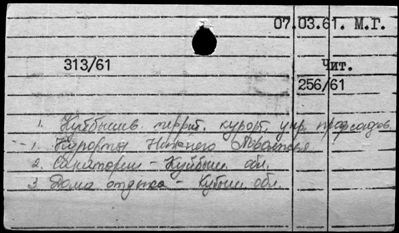 07.03.61. М.Г.
313/61 Чит.
256/61
1. Куйбышев. террит. курорт. упр. профсоюзов.
1. Курорты Нижнего Поволжья.
2. Санатории - Куйбыш. обл.
3. Дома отдыха - Куйбыш. обл.